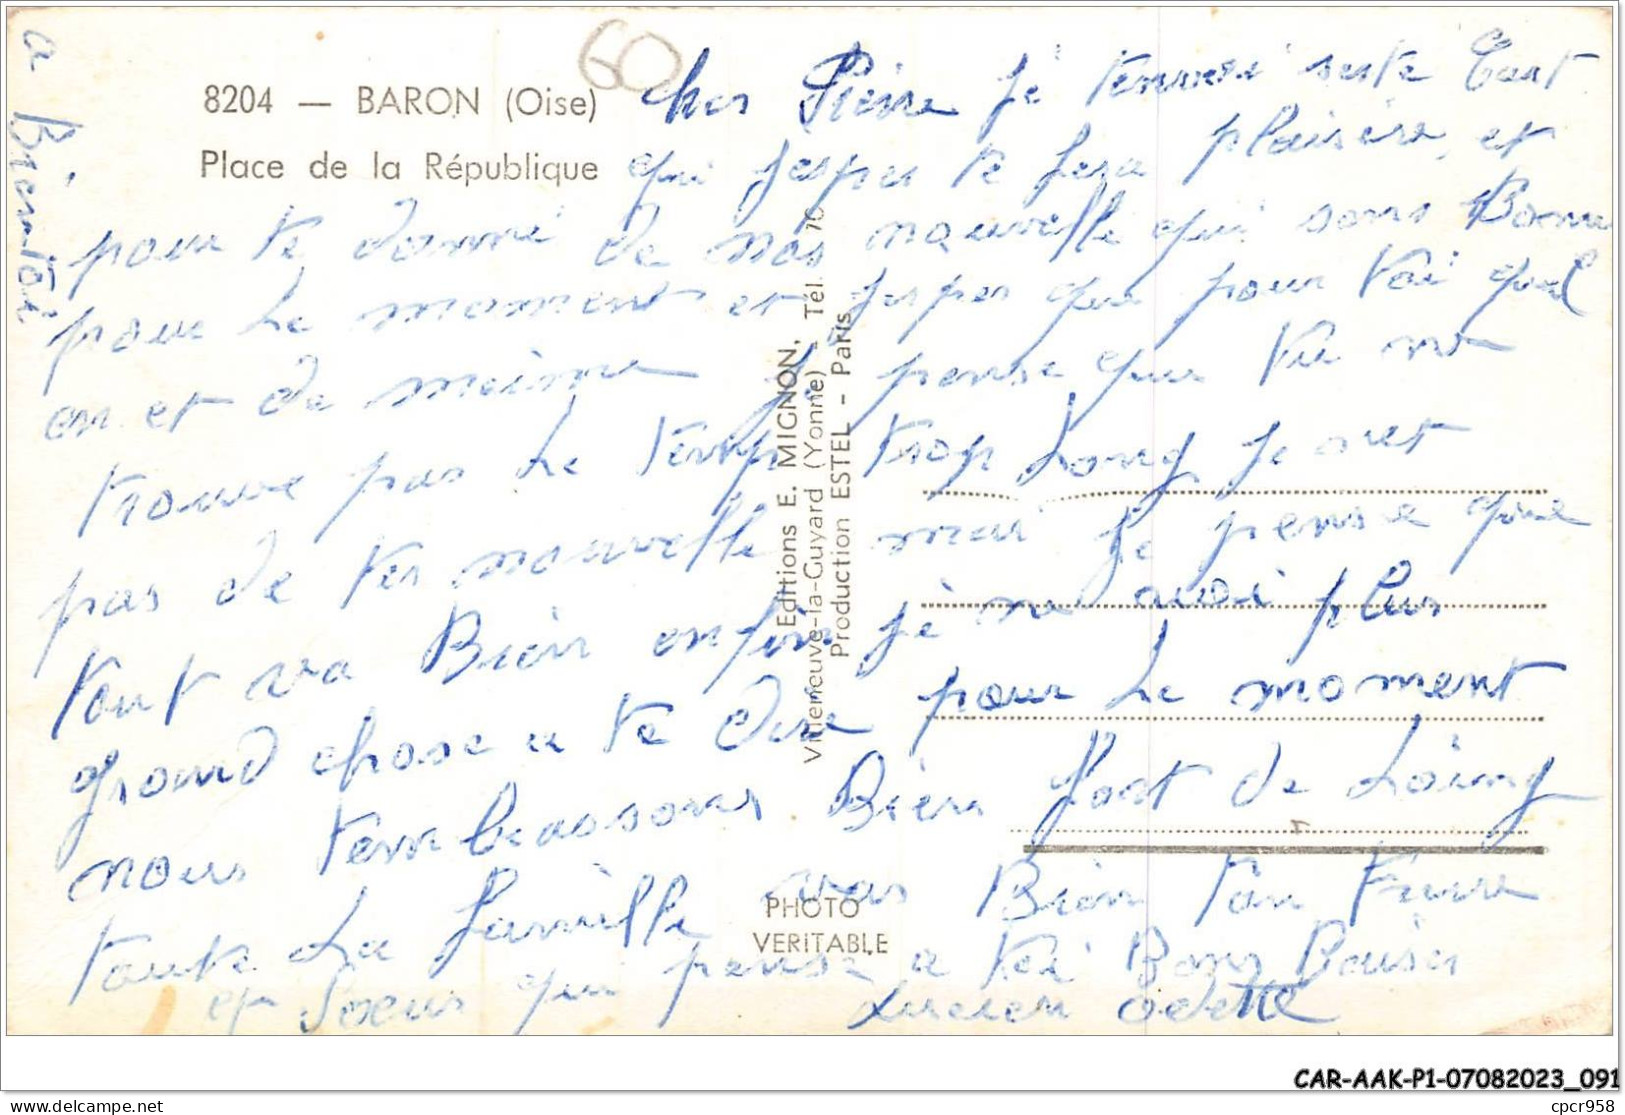 60
8204 — BARON (Oise)
Place de la République
cher Pierre je tenvoie sete Cart
qui jesper te fera plaisire et
pour te donné de nos nouvelle qui sons Bonne
pour le moment et jesper que pour toi quel
en et de meime je pense que tu ne
trouve pas le temp trop long je oret
pas de tes nouvelle mai je pense que
tout va Bien enfin je ne voi plus
grand chose a te dire pour le moment
nous tembrassons Bien fort de Loing
toute la famille Bien Ton Frere
et Soeur qui pense a toi Bons Baiser
Lucien odette
a Biento
Editions E. MIGNON,
Villeneuve-la-Guyard (Yonne) _ Tél. 70
Production ESTEL - Paris
PHOTO
VERITABLE
CAR-AAK-P1-07082023_091
https://www.delcampe.net
cpcr958